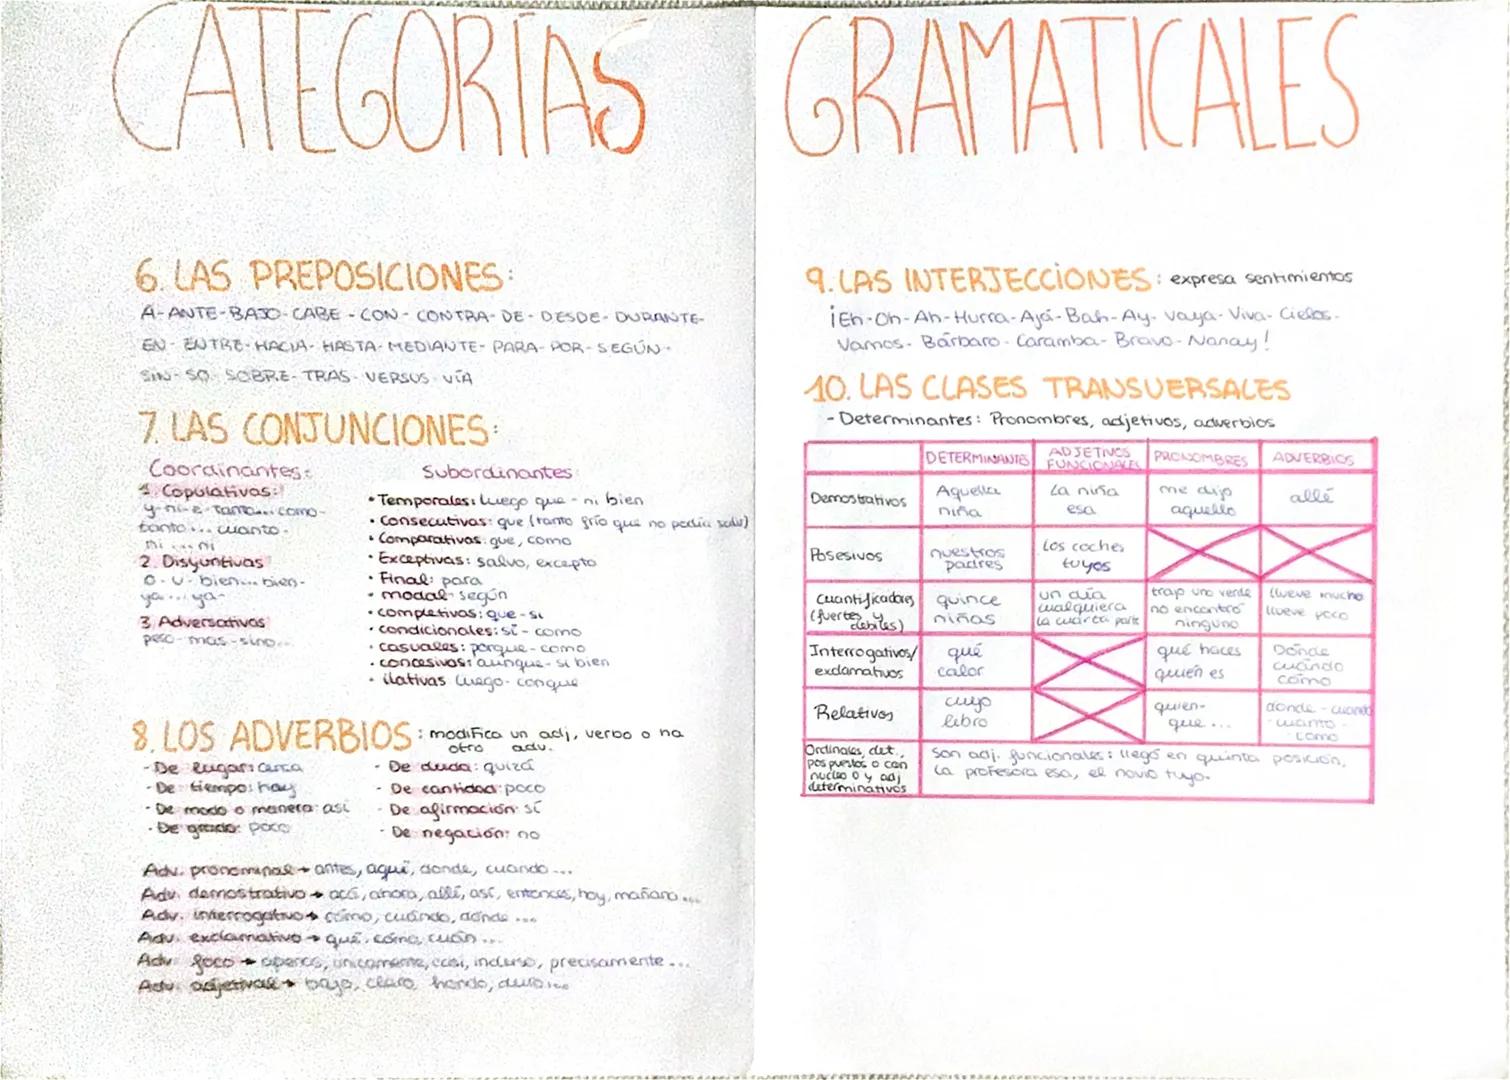 CATEGORÍAS GRAMATICALES
6. LAS PREPOSICIONES:
A-ANTE-BAJO-CABE-CON-CONTRA-DE-DESDE-DURANTE-
EN-ENTRE-HACIA-HASTA-MEDIANTE-PARA-POR-SEGÚN-
SIN-SO-SOBRE-TRAS-VERSUS-VÍA
7. LAS CONJUNCIONES:
Coordinantes:
1. Copulativas:
y-ni-e-tanto... como-
tanto... cuanto-
ni ... ni
2. Disyuntivas
o-u-bien... bien-
ya... ya-
3. Adversativas
pero-mas-sino...
Subordinantes
• Temporales: luego que - ni bien
• Consecutivas: que (tanto frío que no podía salir)
• Comparativas: que, como
• Exceptivas: salvo, excepto
• Final: para
• modal-según
• completivas: que-si
• condicionales: si - como
• casuales: porque-como
• concesivas: aunque-si bien
• ilativas luego-conque
8. LOS ADVERBIOS: modifica un adj, verbo o na
otro adv.
- De lugar: cerca
- De tiempo: hoy
- De modo o manera: así
- De grado: poco
- De duda: quizá
- De cantidad: poco
- De afirmación: sí
- De negación: no
Adv. pronominal → antes, aquí, donde, cuando...
Adv. demostrativo → acá, ahora, allí, así, entonces, hoy, mañana...
Adv. interrogativo → cómo, cuándo, dónde...
Adv. exclamativo → qué, cómo, cuán...
Adv. foco → apenas, únicamente, casi, incluso, precisamente...
Adv. adjetival → bajo, claro, hondo, duro...
9. LAS INTERJECCIONES: expresa sentimientos
¡Eh-Oh-Ah-Hurra-Ajá-Bah-Ay-Vaya-Viva-Cielos-
Vamos-Bárbaro-Caramba-Bravo-Nanay!
10. LAS CLASES TRANSVERSALES
- Determinantes: Pronombres, adjetivos, adverbios
DETERMINANTES ADJETIVOS FUNCIONALES PRONOMBRES ADVERBIOS
Demostrativos Aquella niña La niña esa me dijo aquello allí
Posesivos nuestros padres Los coches tuyos
Cuantificadores (fuertes y débiles) quince niñas un día cualquiera la cuarta parte trajo uno verde no encontró ninguno llueve mucho llueve poco
Interrogativos/ exclamativos qué calor qué haces quién es Dónde cuándo cómo
Relativos cuyo libro quien- que... donde-cuando -cuanto -como
Ordinales, det. pospuestos o con núcleo o y adj determinativos Son adj. funcionales: llegó en quinta posición, la profesora esa, el novio tuyo.